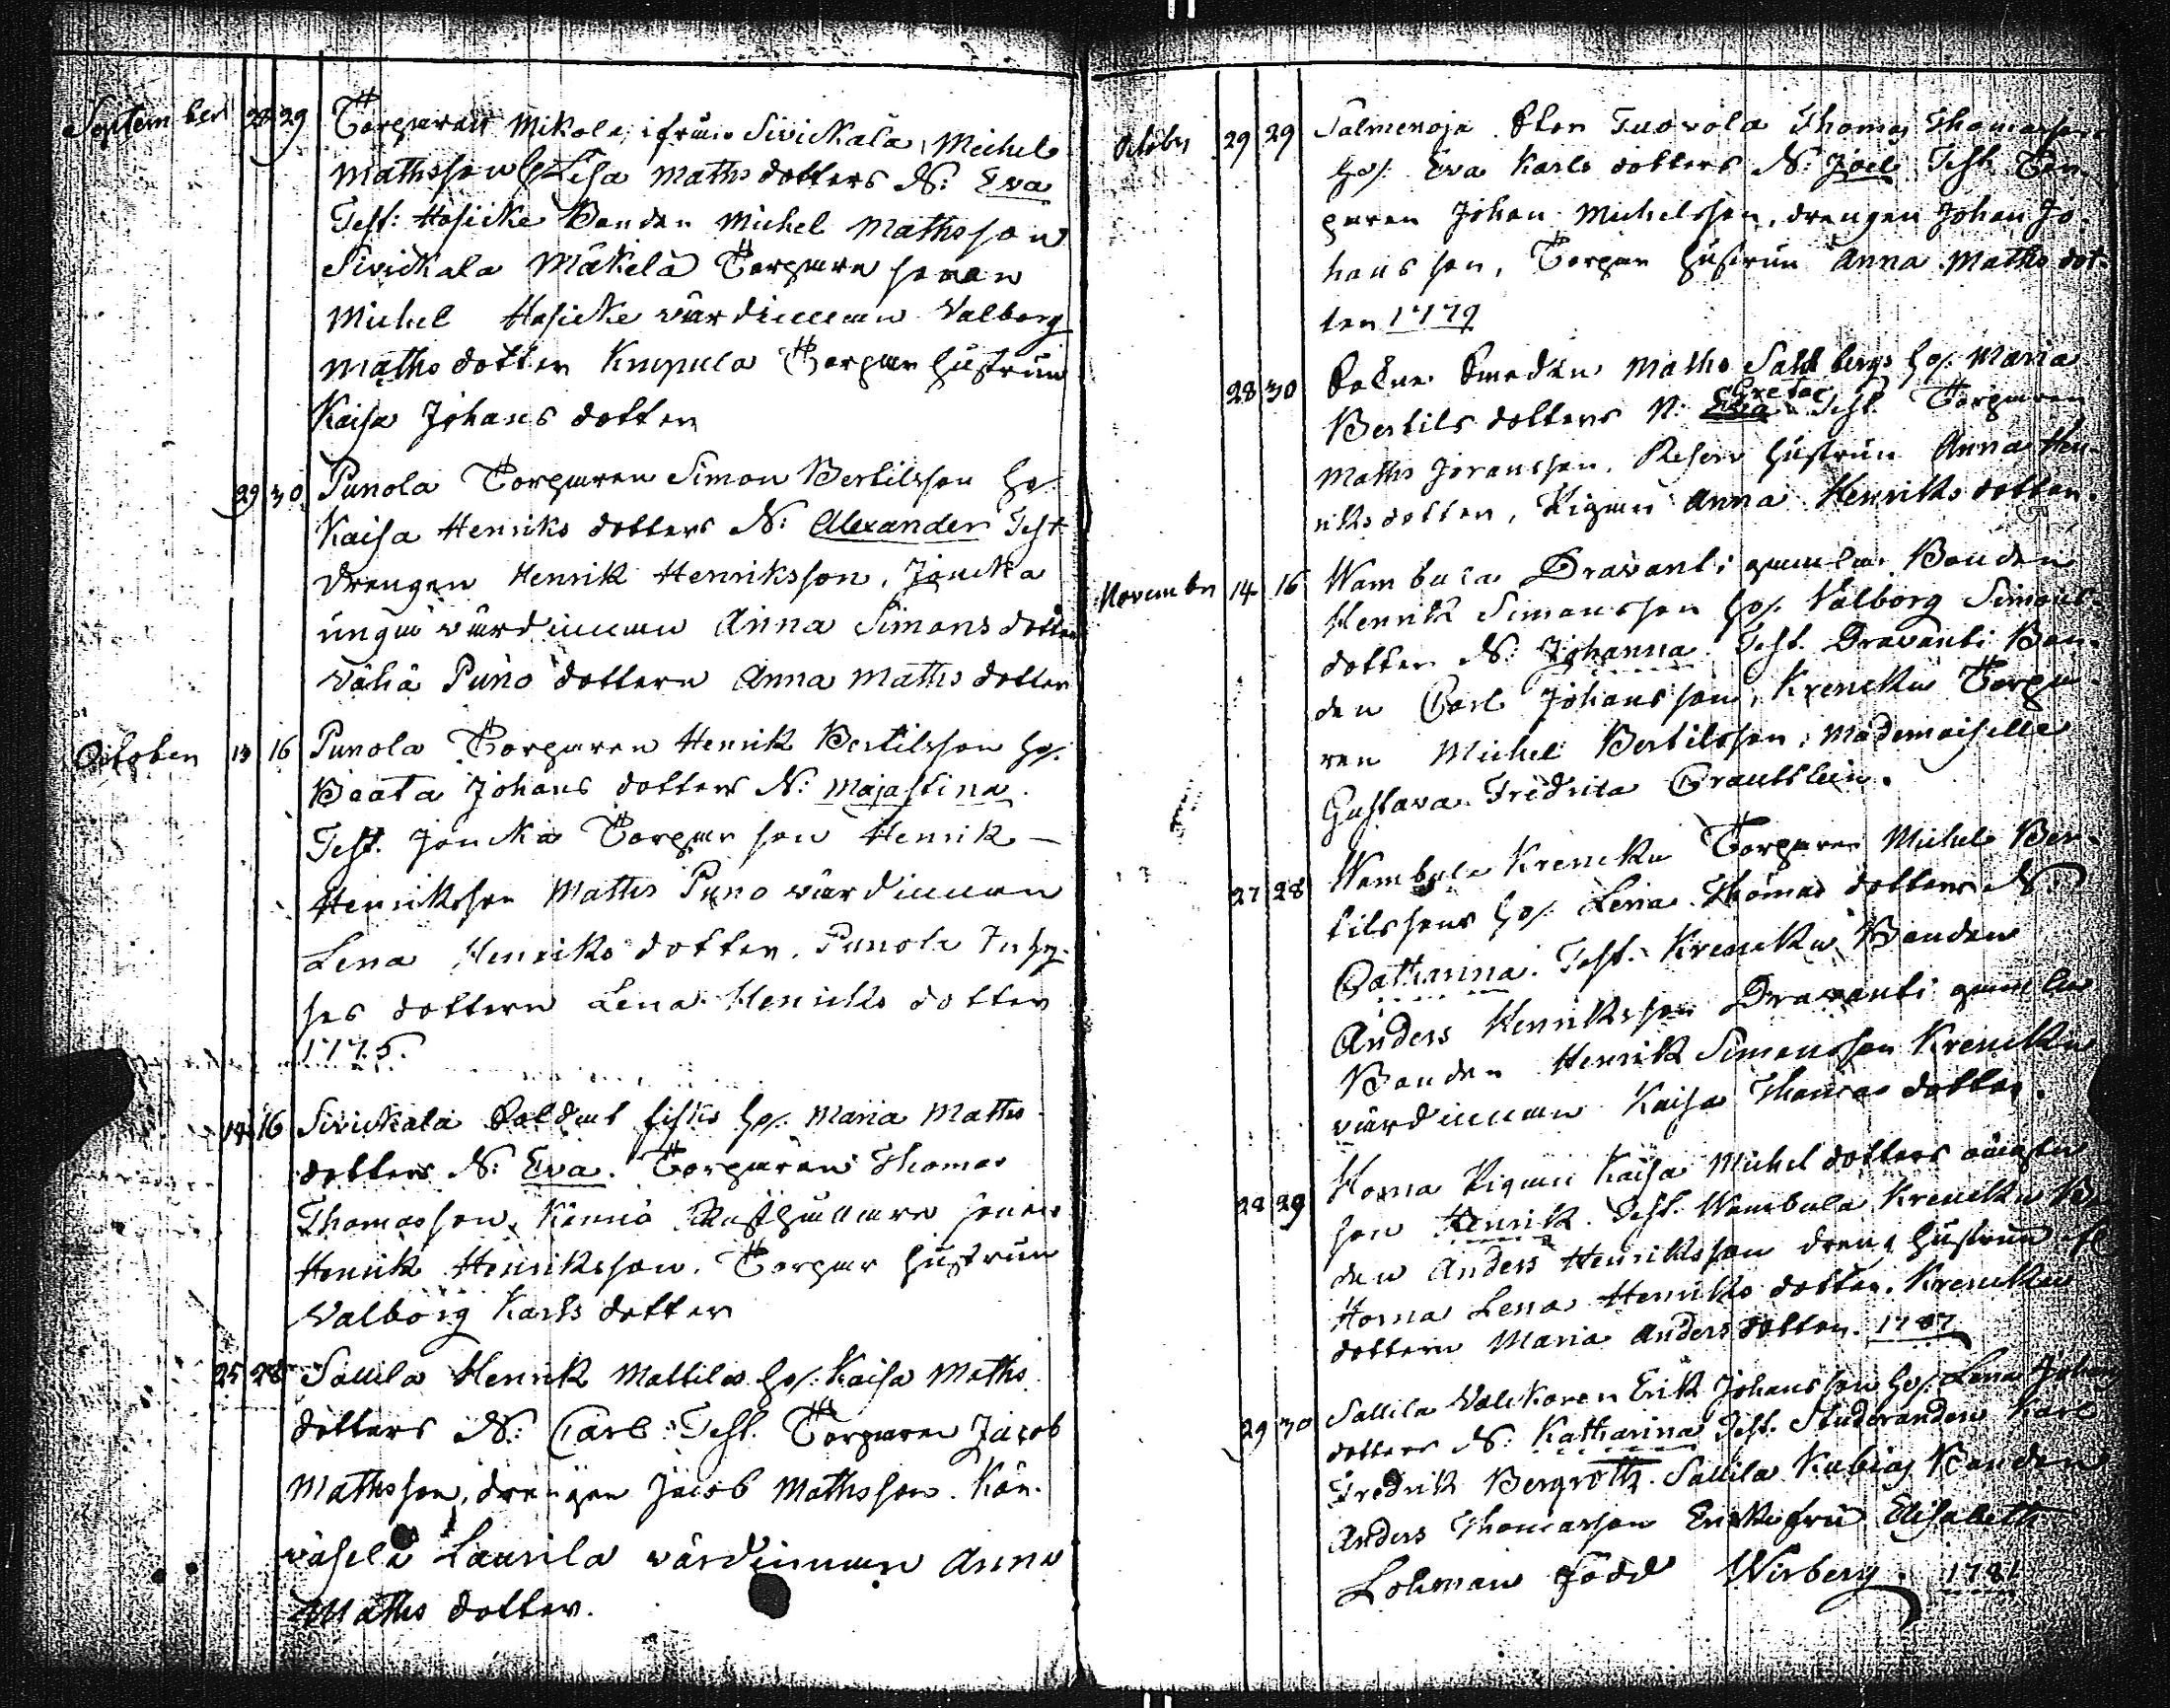 September 28 29 Torparen Mikola ifrån Sivickala Michel
Mathsson & Lisa Maths dotters N: Eva
Test: Hosicke Bonden Michel Mathsson
Sivickala Mäkelä Torpare sonen
Michel Hosicke värdinnan Valborg
Maths dotter Knupula Torpar hustrun
Kaisa Johans dotter
29 30 Punola Torparen Simon Bertilsson hs/
Kaisa Henriks dotters N: Alexander Test
drengen Henrik Henriksson, Joncka
unga värdinnan Anna Simons dotter
Vähä Puno dottern Anna Maths dotter
October 13 16 Punola Torparen Henrik Bertilsson hs/.
Beata Johans dotters N: Majastina.
Test. Joncka Torpar son Henrik
Henriksson Maths Puno värdinnan
Lena Henriks dotter. Punola Inhy-
ses dottern Lena Henriks dotter
1775.
14 16 Sivickala Soldat Fisks hs/. Maria Maths
dotters N: Eva. Torparen Thomas
Thomasson, Kännö Rusthållare sonen
Henrik Henriksson. Torpar hustrun
Valborg Karls dotter
25 28 Sallila Henrik Mattilas hs/. Kaisa Maths
dotters N: Carl Test. Torparen Jacob
Mathsson, drengen Jacob Mathsson. Kön-
väselä Laurila värdinnan Anna
Maths dotter.
October 29 29 Salmenoja Sten Tuovola Thomas Thomasson
hs/. Eva Karls dotters N: Joel Test. Tor-
paren Johan Michelsson, drengen Johan Jo-
hansson, Torpar hustrun Anna Maths dot-
ter 1779
28 30 Sokne Smeden Maths Sahlbergs hs/. Maria
Greta
Bertils dotters N: Eva Test. Torparen
Maths Göransson, hustrun Anna Hen-
riks dotter, Pigan Anna Henriks dotter.
November 14 16 Wambula Dravanti gamla Bonden
Henrik Simonsson hs/. Valborg Simons
dotter N: Johanna. Test. Dravanti Bon-
den Carl Johansson, Krencku Torpa-
ren Michel Bertilsson, Mademoiselle
Gustava Fredrica
27 28 Wambula Krencku Torparen Michel Ber-
tilssons hs/. Lena Thomas dotters N:
Catharina. Test. Krencku Bonden
Anders Henriksson Dravanti gamla
Bonden Henrik Simonsson Krencku
värdinnan Kaisa Thomas dotter.
28 29 Horna Pigan Kaisa Michel dotters oäegta
son Henrik. Test. Wambula Krencku Bon-
den Anders Henriksson dreng hustrun
Horna Lena Henriks dotter. Krencku
dottern Maria Anders dotter. 1787
29 30 Sallila Valckaren Erik Johansson hs/. Lena Johans
dotters N: Katharina Test. Studeranden Karl
Fredrik Bergroth. Sallila Kubiaj Bonden
Anders Thomasson Enke fru Elisabeth
Lohman Född Wirberg. 1781